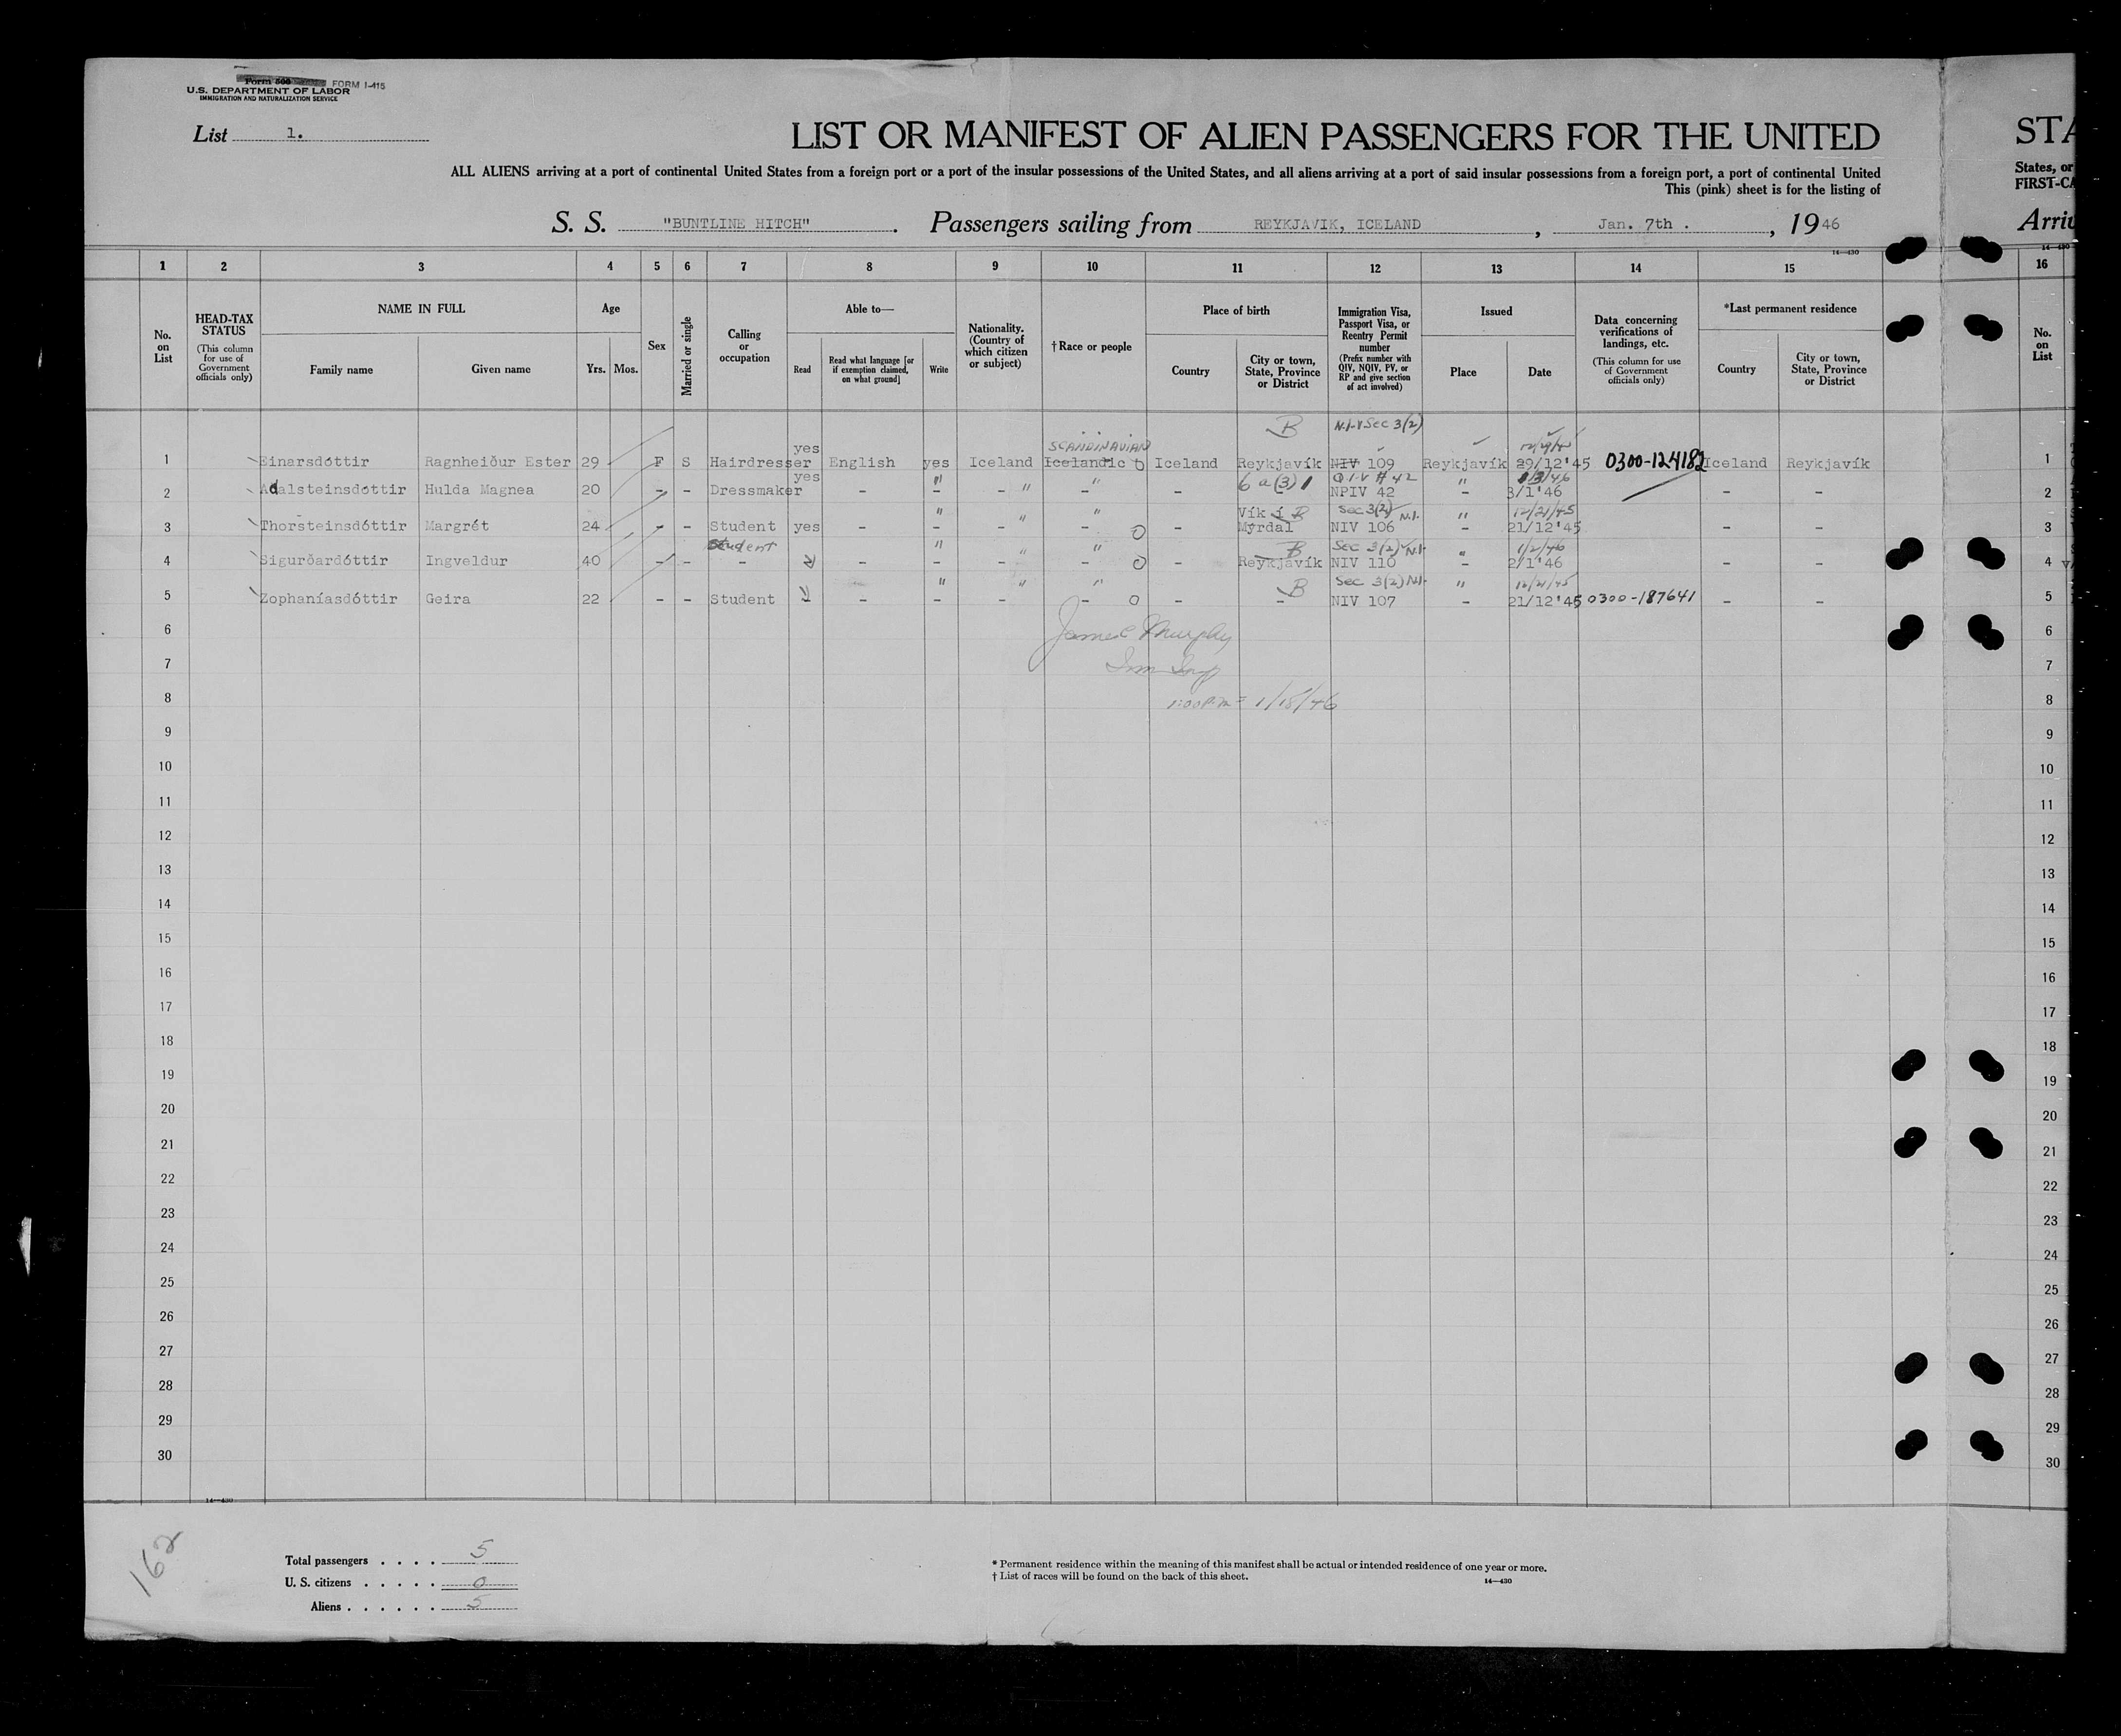 Form 500 FORM I-415
U.S. DEPARTMENT OF LABOR
IMMIGRATION AND NATURALIZATION SERVICE
List 1.
LIST OR MANIFEST OF ALIEN PASSENGERS FOR THE UNITED
STA
ALL ALIENS arriving at a port of continental United States from a foreign port or a port of the insular possessions of the United States, and all aliens arriving at a port of said insular possessions from a foreign port, a port of continental United
States, or
This (pink) sheet is for the listing of
FIRST-CA
S. S. "BUNTLINE HITCH". Passengers sailing from REYKJAVIK, ICELAND, Jan. 7th ., 1946
Arriv
14-430
1 2 3 4 5 6 7 8 9 10 11 12 13 14 15 16
No. on List
HEAD-TAX STATUS (This column for use of Government officials only)
NAME IN FULL
Family name Given name
Age
Yrs. Mos.
Sex
Married or single
Calling or occupation
Able to—
Read Read what language [or if exemption claimed, on what ground] Write
Nationality. (Country of which citizen or subject)
†Race or people
Place of birth
Country City or town, State, Province or District
Immigration Visa, Passport Visa, or Reentry Permit number (Prefix number with QIV, NQIV, PV, or RP and give section of act involved)
Issued
Place Date
Data concerning verifications of landings, etc. (This column for use of Government officials only)
*Last permanent residence
Country City or town, State, Province or District
No. on List
B N.I.V Sec 3(2)
yes SCANDINAVIAN 12/29/45
1 Einarsdóttir Ragnheiður Ester 29 F S Hairdresser English yes Iceland Icelandic Iceland Reykjavík NIV 109 Reykjavík 29/12'45 0300-124182 Iceland Reykjavík 1
yes " " " 6 a (3) 1 Q I-V # 42 " 1/3/46
2 Adalsteinsdóttir Hulda Magnea 20 - - Dressmaker - - - - - NPIV 42 - 3/1'46 - - 2
" " " Vík í B Sec 3(2) N.I. " 12/21/45
3 Thorsteinsdóttir Margrét 24 - - Student yes - - - - 0 - Myrdal NIV 106 - 21/12'45 - - 3
Student " " " B Sec 3(2) N.I. " 1/2/46
4 Sigurðardóttir Ingveldur 40 - - - - - - - 0 - Reykjavík NIV 110 - 2/1'46 - - 4
" " " B Sec 3(2) N.I. " 12/21/45
5 Zophaníasdóttir Geira 22 - - Student - - - - - 0 - - NIV 107 - 21/12'45 0300-187641 - - 5
James Murphy
Imm Insp
1:00 PM = 1/18/46
6 6
7 7
8 8
9 9
10 10
11 11
12 12
13 13
14 14
15 15
16 16
17 17
18 18
19 19
20 20
21 21
22 22
23 23
24 24
25 25
26 26
27 27
28 28
29 29
30 30
14-430
162
Total passengers . . . . 5
U. S. citizens . . . . . 0
Aliens . . . . . . 5
* Permanent residence within the meaning of this manifest shall be actual or intended residence of one year or more.
† List of races will be found on the back of this sheet.
14-430